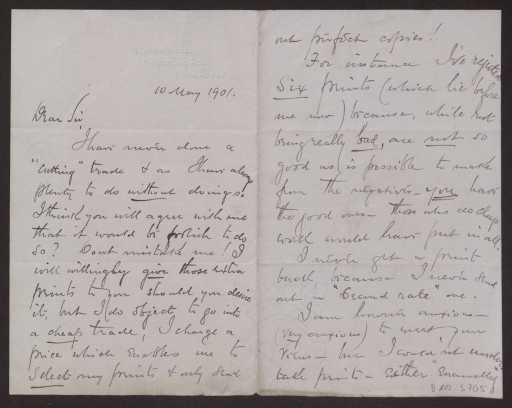 10 May 1901.
Dear Sir
I have never done a
"cutting" trade & as I have always
plenty to do without doing so
I think you will agree with me
that it would be foolish to do
so? Dont mistake me! I
will willingly give those extra
prints to you should you desire
it, but I do object to go into
a cheap trade, I charge a
price which enables me to
select my prints & only send
out perfect copies!
For instance I've rejected
Six prints (which lie before
me now) because, while not
being really bad, are not so
good as is possible to make
from the negatives – you have
the good ones – those who do cheap
work would have put in all.
I never get a print
back because I never send
out a "Second rate" one.
I am however anxious –
(very anxious) to meet your
views – but I couldn't
take prints – either